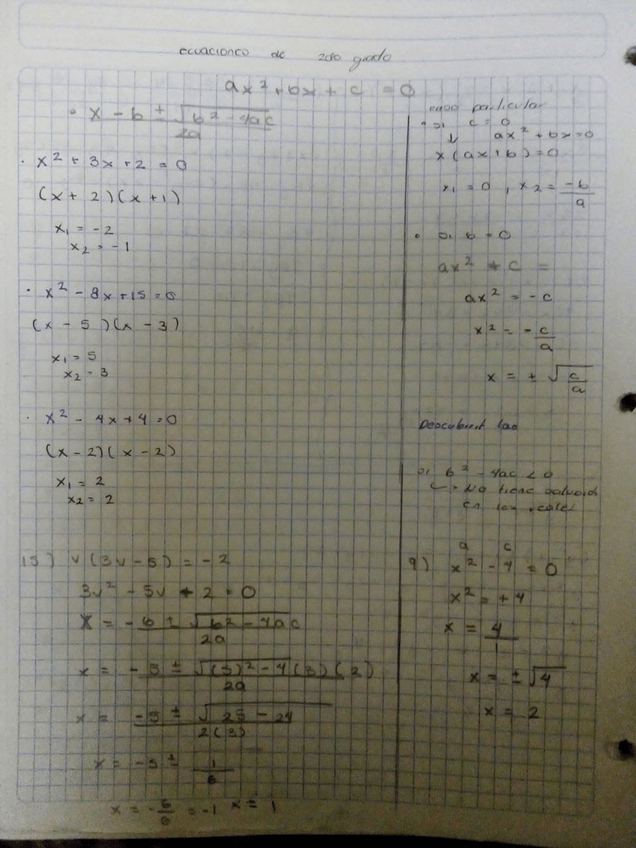 ecuaciones de 2do grado
ax² + bx + c = 0
• x - b ± √b² - 4ac
2a
• x² + 3x + 2 = 0
(x + 2)(x + 1)
x₁ = -2
x₂ = -1
• x² - 8x + 15 = 0
(x - 5)(x - 3)
x₁ = 5
x₂ = 3
• x² - 4x + 4 = 0
(x - 2)(x - 2)
x₁ = 2
x₂ = 2
15) v(3v - 5) = -2
3v² - 5v + 2 = 0
x = -b ± √b² - 4ac
2a
x = -5 ± √(5)² - 4(3)(2)
2a
x = -5 ± √25 - 24
2(3)
x = -5 ± 1
6
x = -6/6 = -1 x = 1
particular
• si c = 0
↓ ax² + bx = 0
x(ax + b) = 0
x₁ = 0, x₂ = -b/a
• si b = 0
ax² + c =
ax² = -c
x² = -c/a
x = ± √c/a
si b² - 4ac < 0
No tiene
en los reales
a c
9) x² - 4 = 0
x² = +4
x = 4/1
x = ± √4
x = 2